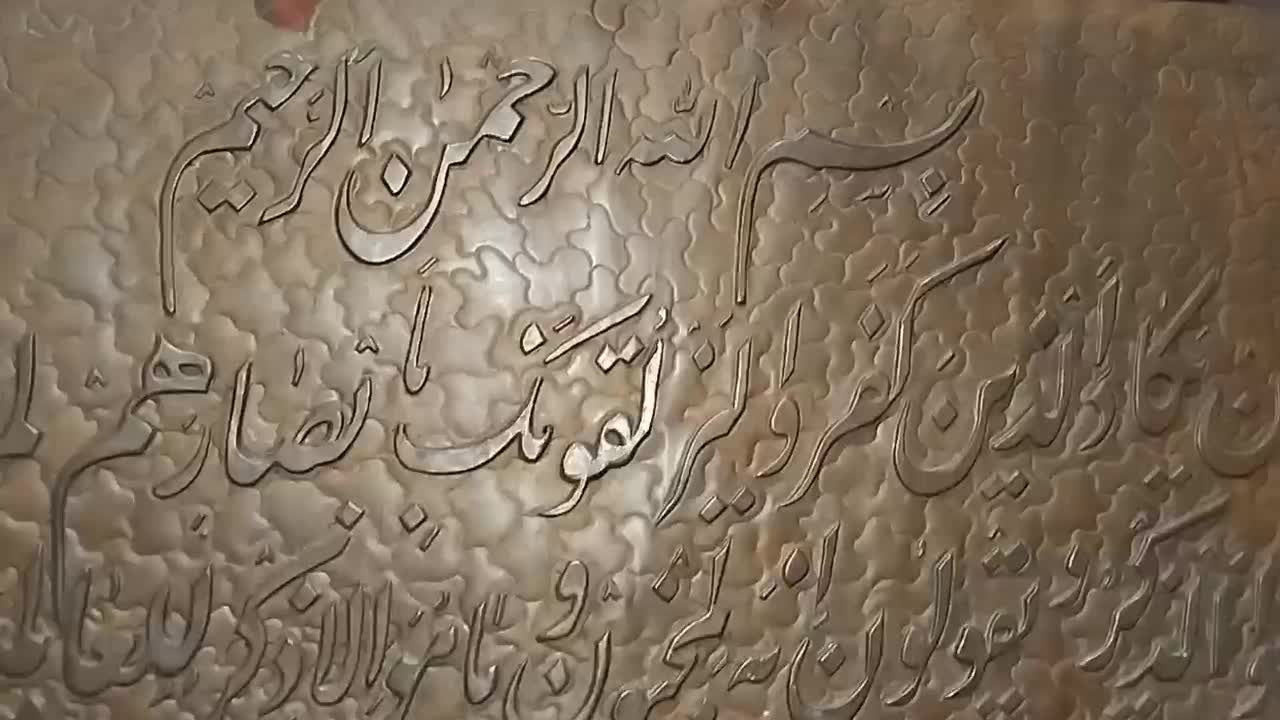 بِسْمِ اللّٰهِ الرَّحْمٰنِ الرَّحِیْمِ
ن یَّکَادُ الَّذِیْنَ کَفَرُوا لَیُزْلِقُونَکَ بِاَبْصَارِهِمْ لَمَّا
الذِّکْرَ وَ یَقُولُونَ اِنَّهُ لَمَجْنُونٌ وَ مَا هُوَ اِلَّا ذِکْرٌ لِلْعَالَمِ